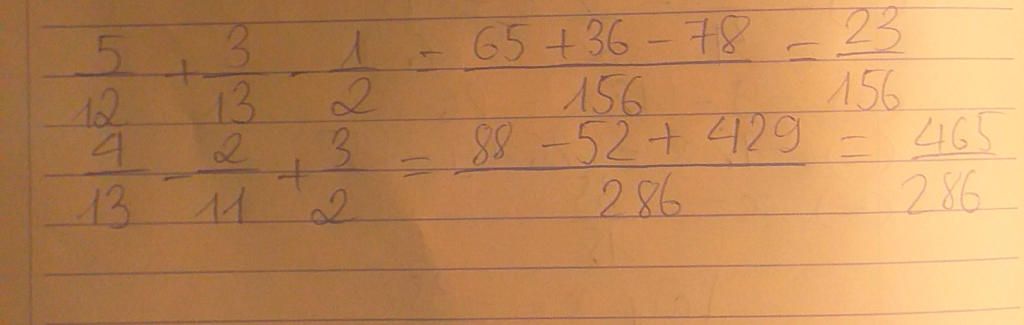 5/12 + 3/13 - 1/2 = (65 + 36 - 78)/156 = 23/156
4/13 - 2/11 + 3/2 = (88 - 52 + 429)/286 = 465/286